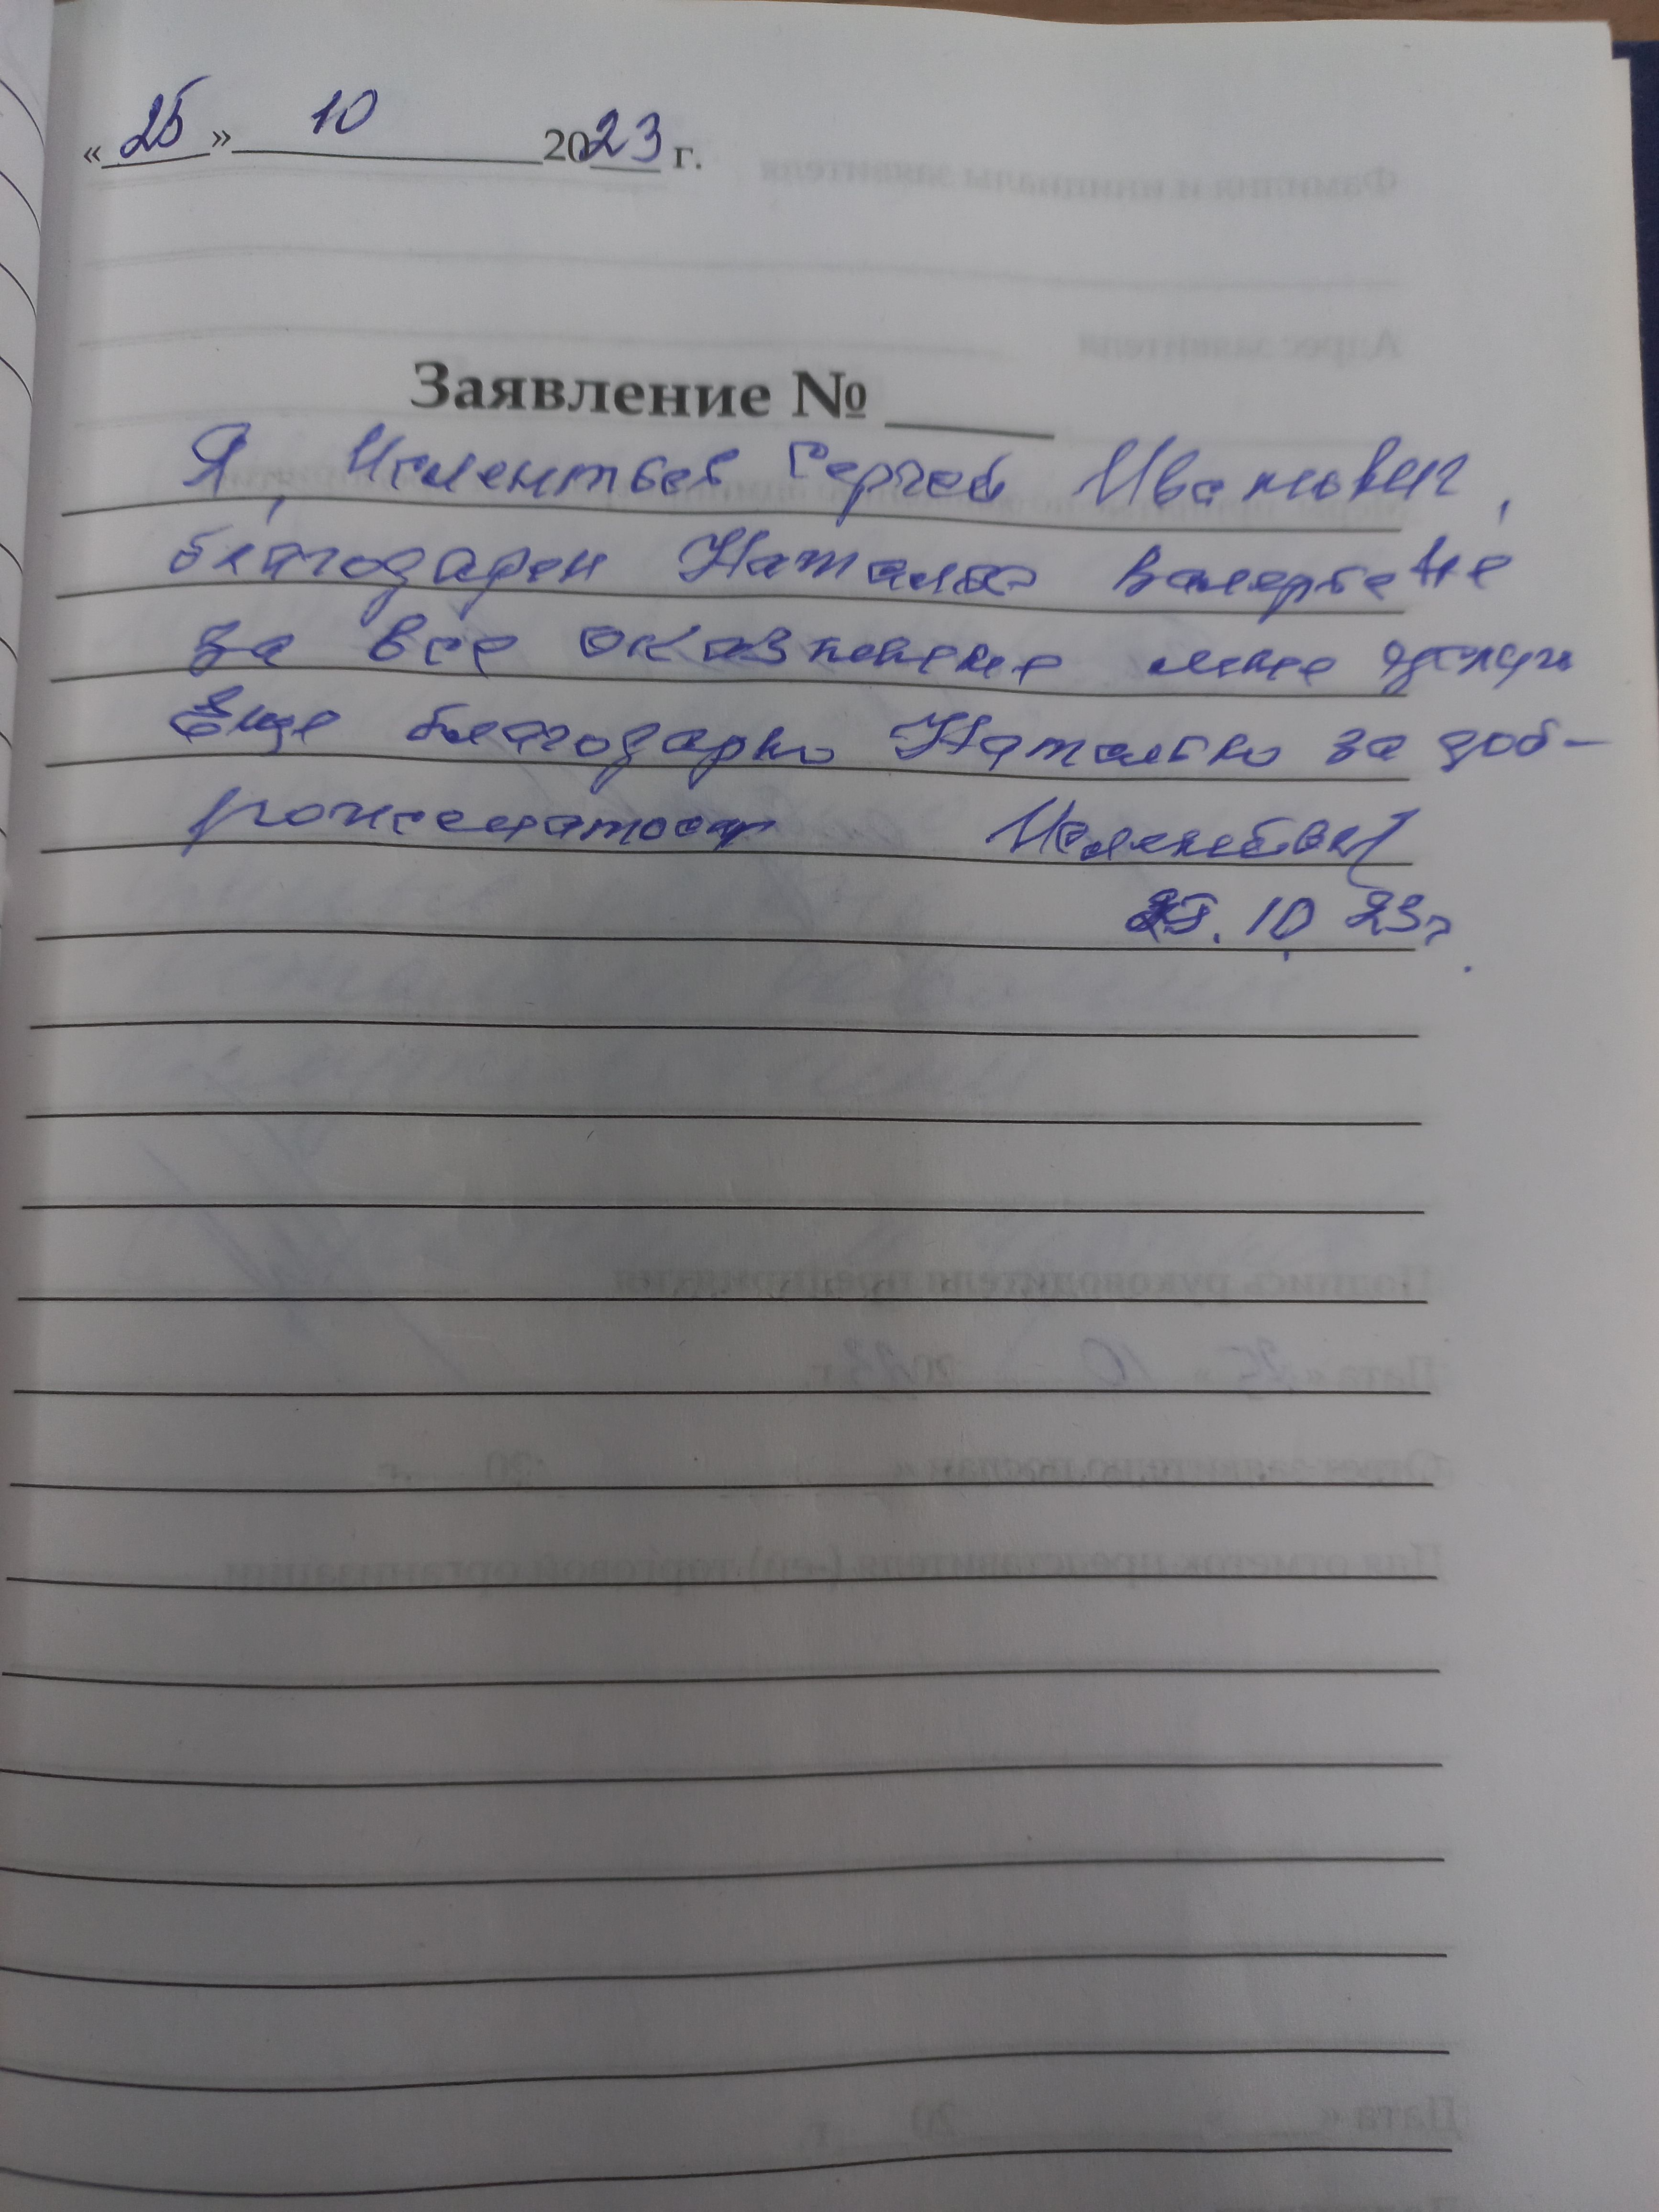 «25» 10 2023 г.
Заявление №
Я, Сергей Иванович,
благодарен Наталье Валерьевне
за все оказанные мне услуги
Еще благодарю Наталью за доб-
рожелатость
25.10 23г.